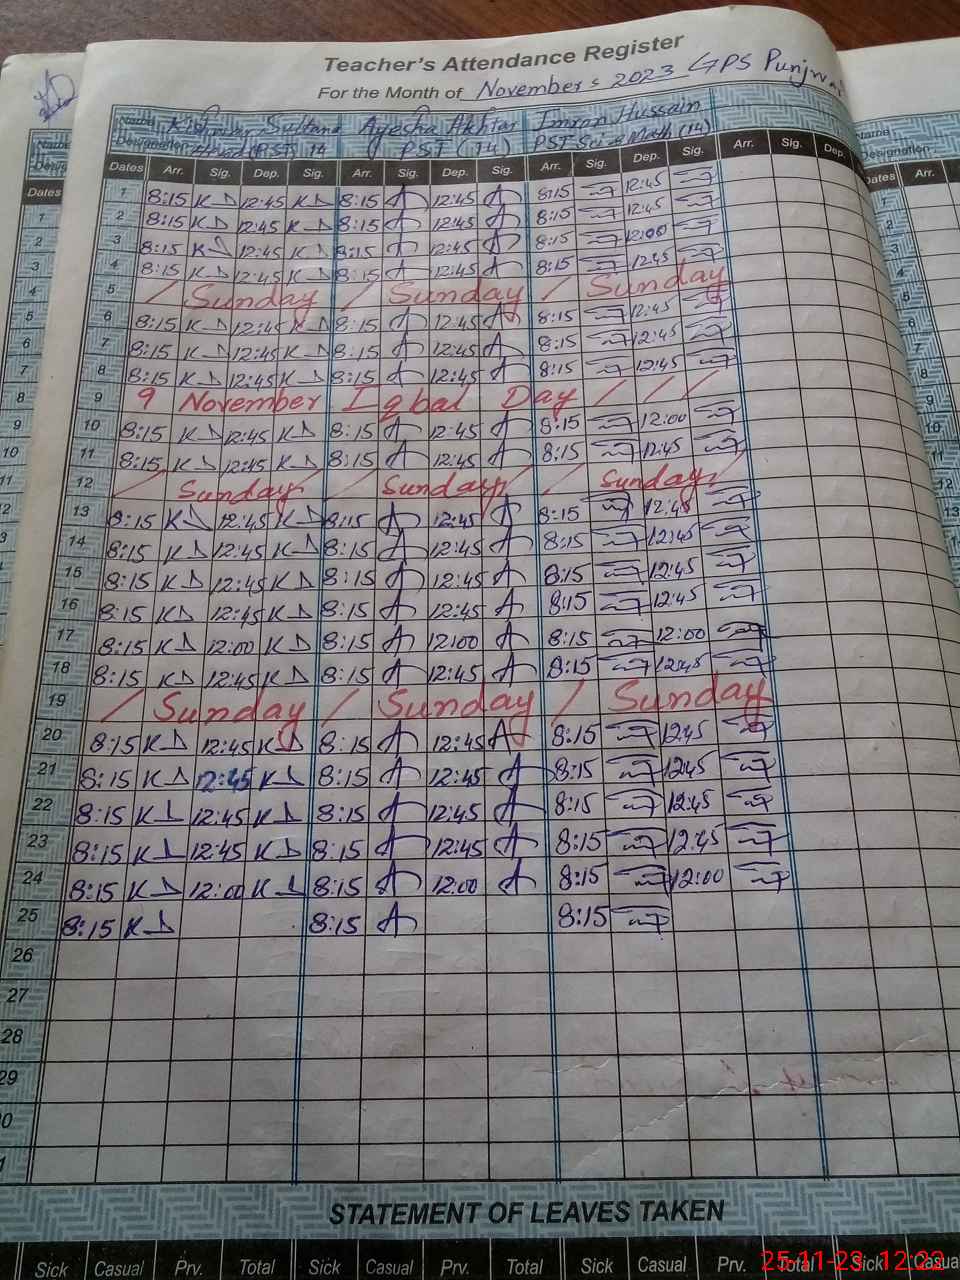 Teacher's Attendance Register
For the Month of November: 2023 GPS
Name Sultana Ayesha Akhtar Imran Hussain Name
Designation Head (PST) 14 PST (14) PST Sci & Math (14) Designation
Dates Arr. Sig. Dep. Sig. Arr. Sig. Dep. Sig. Arr. Sig. Dep. Sig. Arr. Sig. Dep. Dates Arr.
1 8:15 KS 12:45 KS 8:15 A 12:45 A 8:15 12:45
2 8:15 KS 12:45 KS 8:15 A 12:45 A 8:15 12:45
3 8:15 KS 12:45 KS 8:15 A 12:45 A 8:15 12:00
4 8:15 KS 12:45 KS 8:15 A 12:45 A 8:15 12:45
5 / Sunday / Sunday / Sunday
6 8:15 KS 12:45 KS 8:15 A 12:45 A 8:15 12:45
7 8:15 KS 12:45 KS 8:15 A 12:45 A 8:15 12:45
8 8:15 KS 12:45 KS 8:15 A 12:45 A 8:15 12:45
9 9 November Iqbal Day / / /
10 8:15 KS 12:45 KS 8:15 A 12:45 A 8:15 12:00
11 8:15 KS 12:45 KS 8:15 A 12:45 A 8:15 12:45
12 / Sunday / Sunday / Sunday /
13 8:15 KS 12:45 KS 8:15 A 12:45 A 8:15 12:45
14 8:15 KS 12:45 KS 8:15 A 12:45 A 8:15 12:45
15 8:15 KS 12:45 KS 8:15 A 12:45 A 8:15 12:45
16 8:15 KS 12:45 KS 8:15 A 12:45 A 8:15 12:45
17 8:15 KS 12:00 KS 8:15 A 12:00 A 8:15 12:00
18 8:15 KS 12:45 KS 8:15 A 12:45 A 8:15 12:45
19 / Sunday / Sunday / Sunday
20 8:15 KS 12:45 KS 8:15 A 12:45 A 8:15 12:45
21 8:15 KS 12:45 KS 8:15 A 12:45 A 8:15 12:45
22 8:15 KS 12:45 KS 8:15 A 12:45 A 8:15 12:45
23 8:15 KS 12:45 KS 8:15 A 12:45 A 8:15 12:45
24 8:15 KS 12:00 KS 8:15 A 12:00 A 8:15 12:00
25 8:15 KS 8:15 A 8:15
26
27
28
29
STATEMENT OF LEAVES TAKEN
Sick Casual Prv. Total Sick Casual Prv. Total Sick Casual Prv. Total Sick Casual
25-11-23 12:22